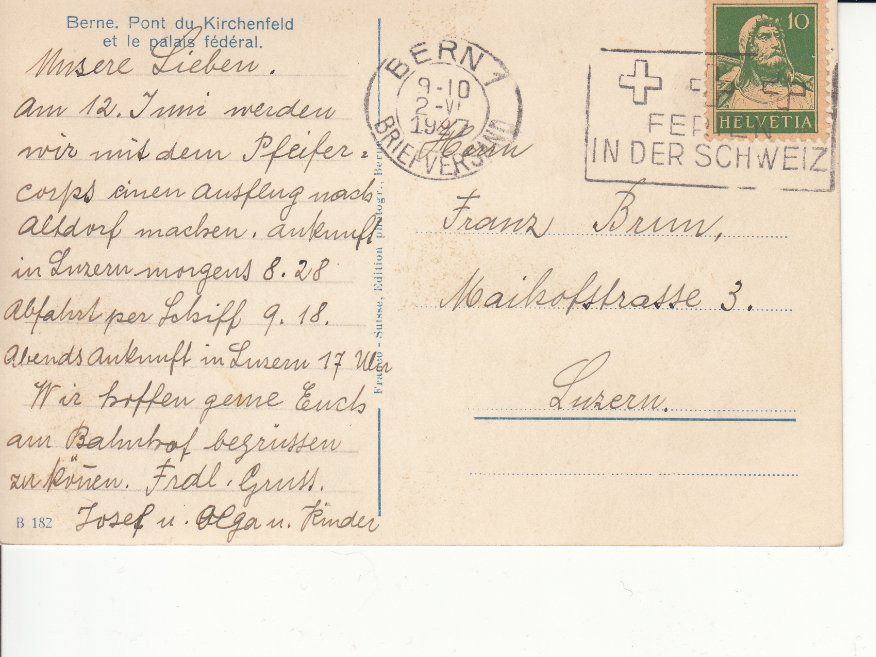 Berne. Pont du Kirchenfeld
et le palais fédéral.
Unsere Lieben.
Am 12. Juni werden
wir mit dem Pfeifer=
corps einen Ausflug nach
Altdorf machen. Ankunft
in Luzern morgens 8.28
Abfahrt per Schiff 9.18.
Abends Ankunft in Luzern 17 Uhr
Wir hoffen gerne Euch
am Bahnhof begrüssen
zu könen. Frdl. Gruss.
Josef u. Olga u. Kinder
B 182
Franco-Suisse, Edition photogr., Berne
BERN 1
9-10
2-VI
1927
BRIEFVERSAND
FERIEN
IN DER SCHWEIZ
10
HELVETIA
Herrn
Franz Brun,
Maihofstrasse 3.
Luzern.